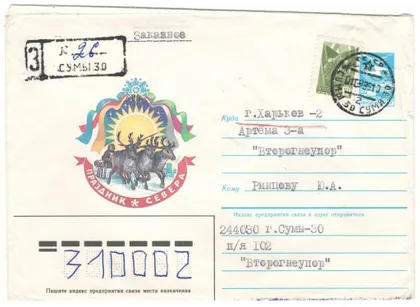 Заказное
З
№ 26
СУМЫ 30
ПРАЗДНИК ✶ СЕВЕРА
Куда
г.Харьков -2
Артема 3-а
"Второгнеупор"
Кому
Ринцову Ю.А.
Индекс предприятия связи и адрес отправителя
244030 г.Сумы-30
п/я 102
"Второгнеупор"
310002
Пишите индекс предприятия связи места назначения